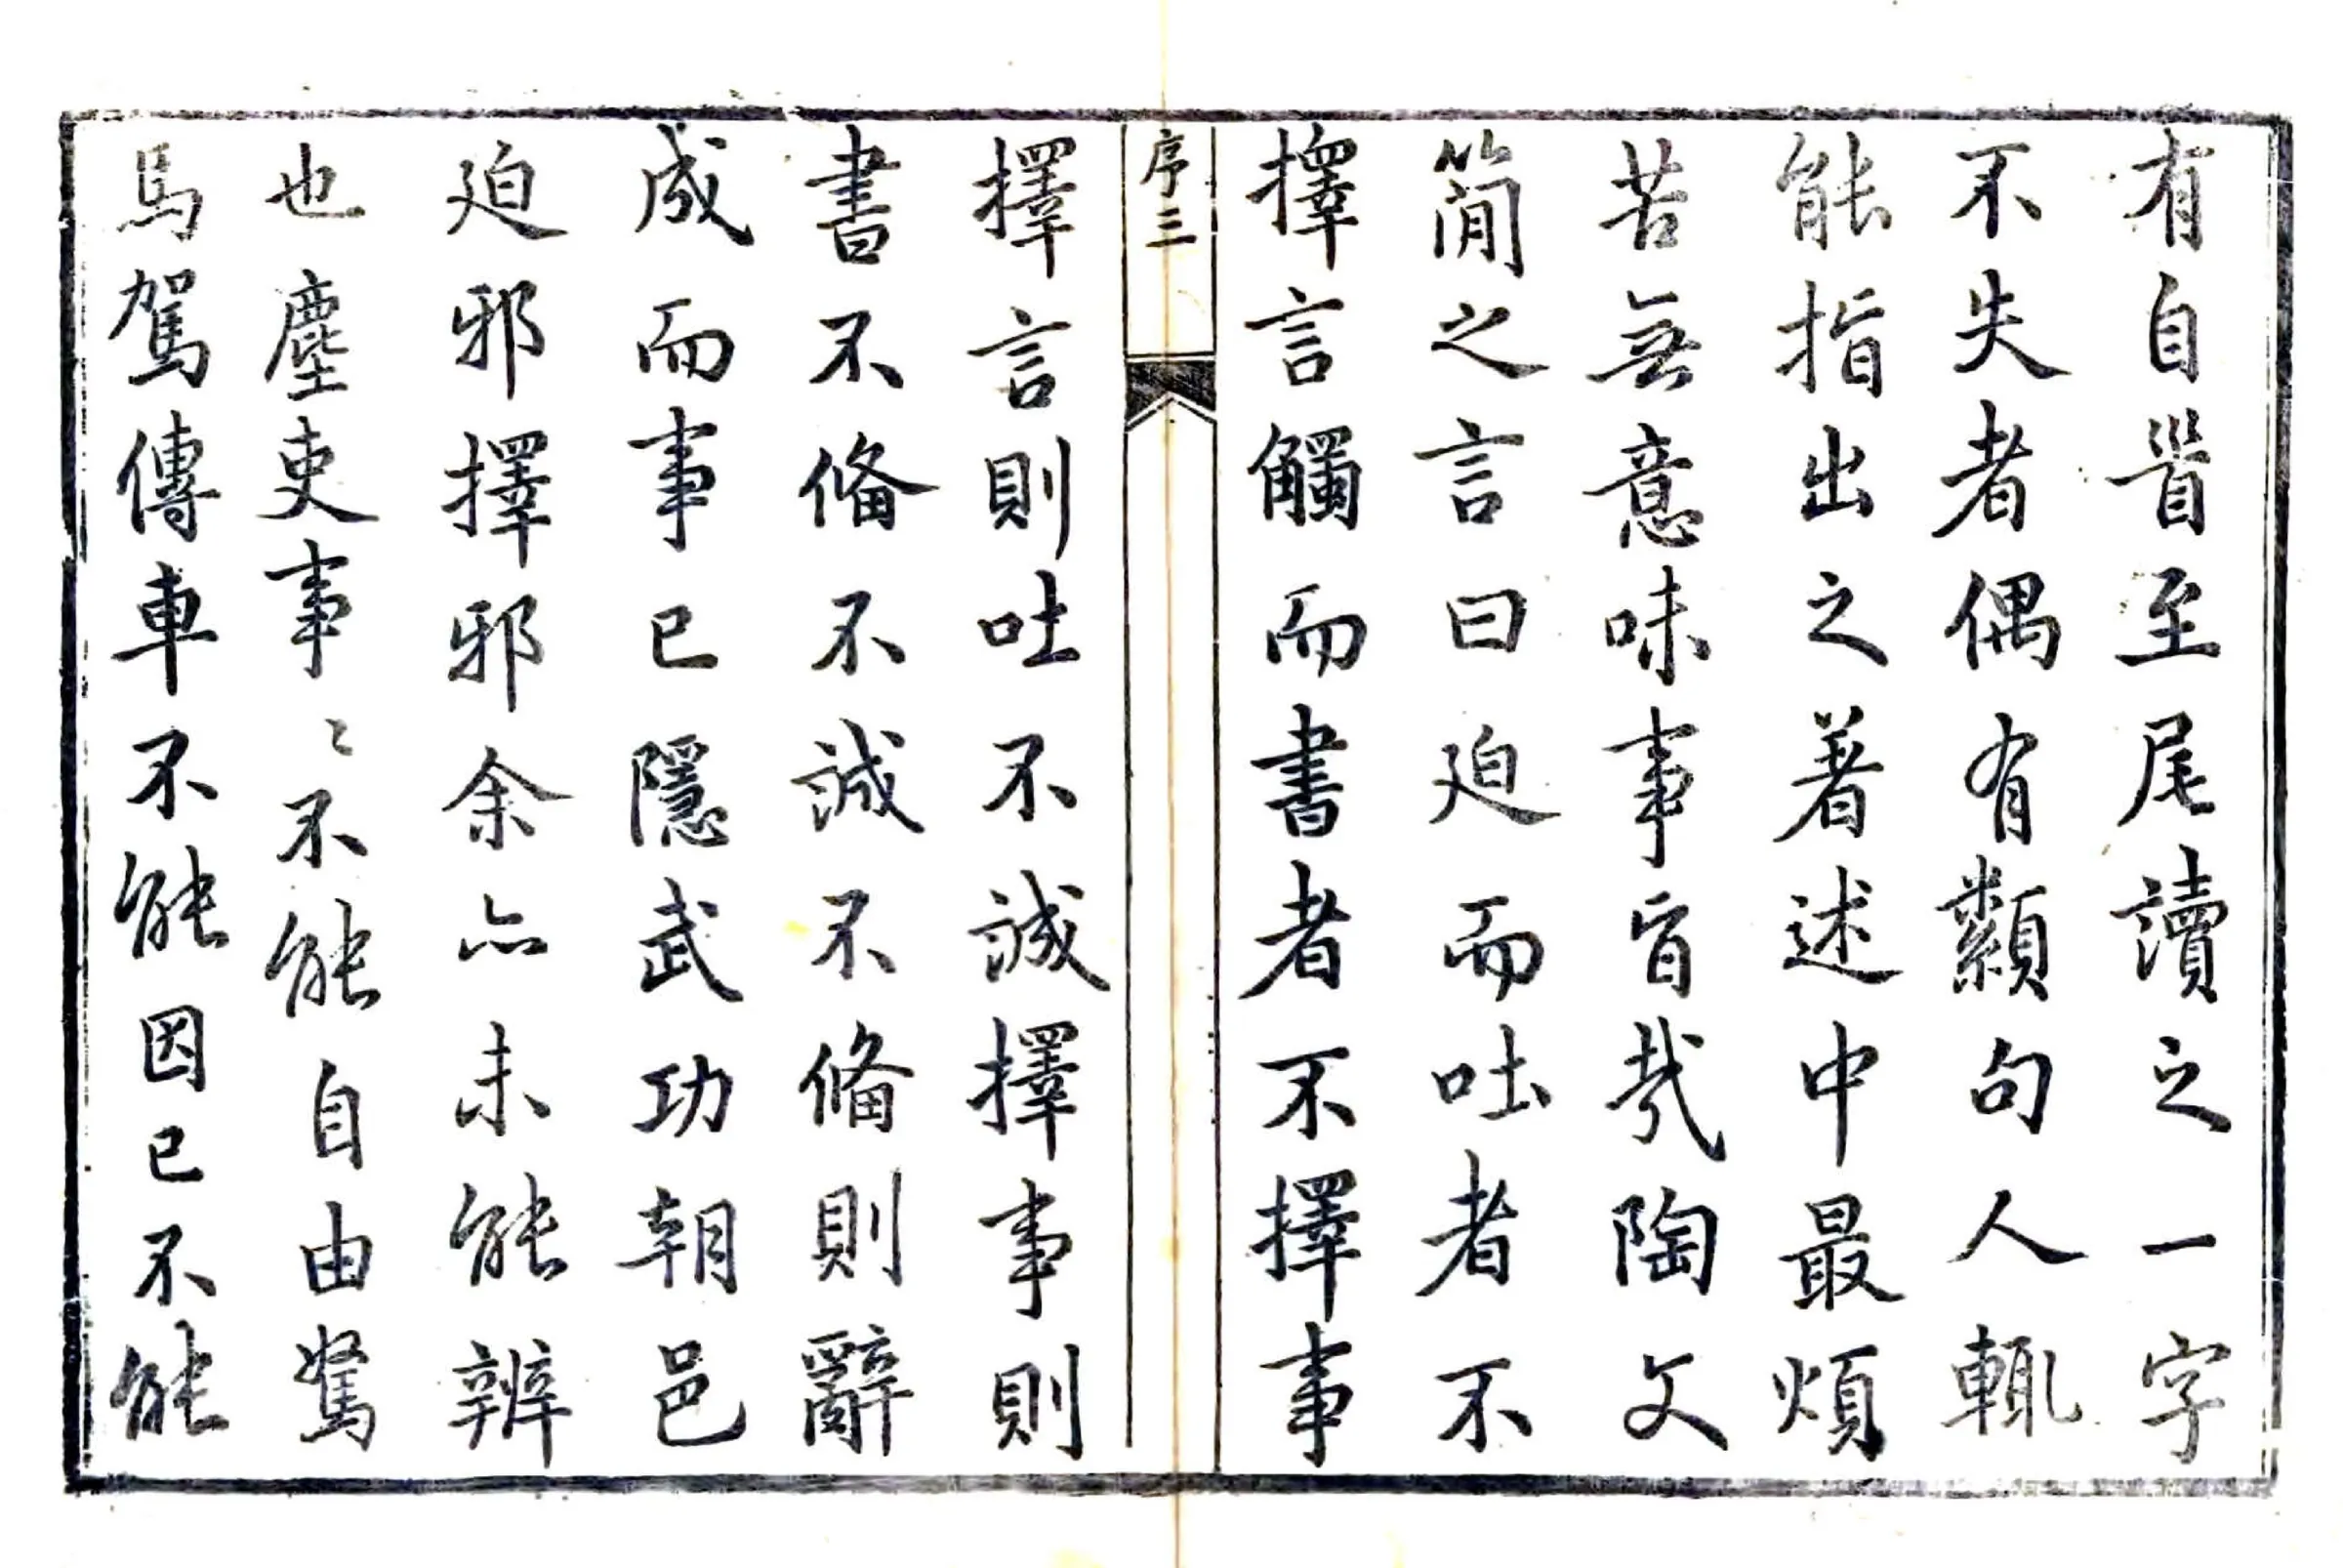 有自首至尾讀之一字
不失者偶有纇句人輒
能指出之著述中最煩
苦無意味事旨哉陶文
簡之言曰迫而吐者不
擇言觸而書者不擇事
序三
擇言則吐不誠擇事則
書不脩不誠不脩則辭
成而事已隱武功朝邑
迫邪擇邪余亦未能辨
也塵吏事〻不能自由駑
馬駕傳車不能因已不能